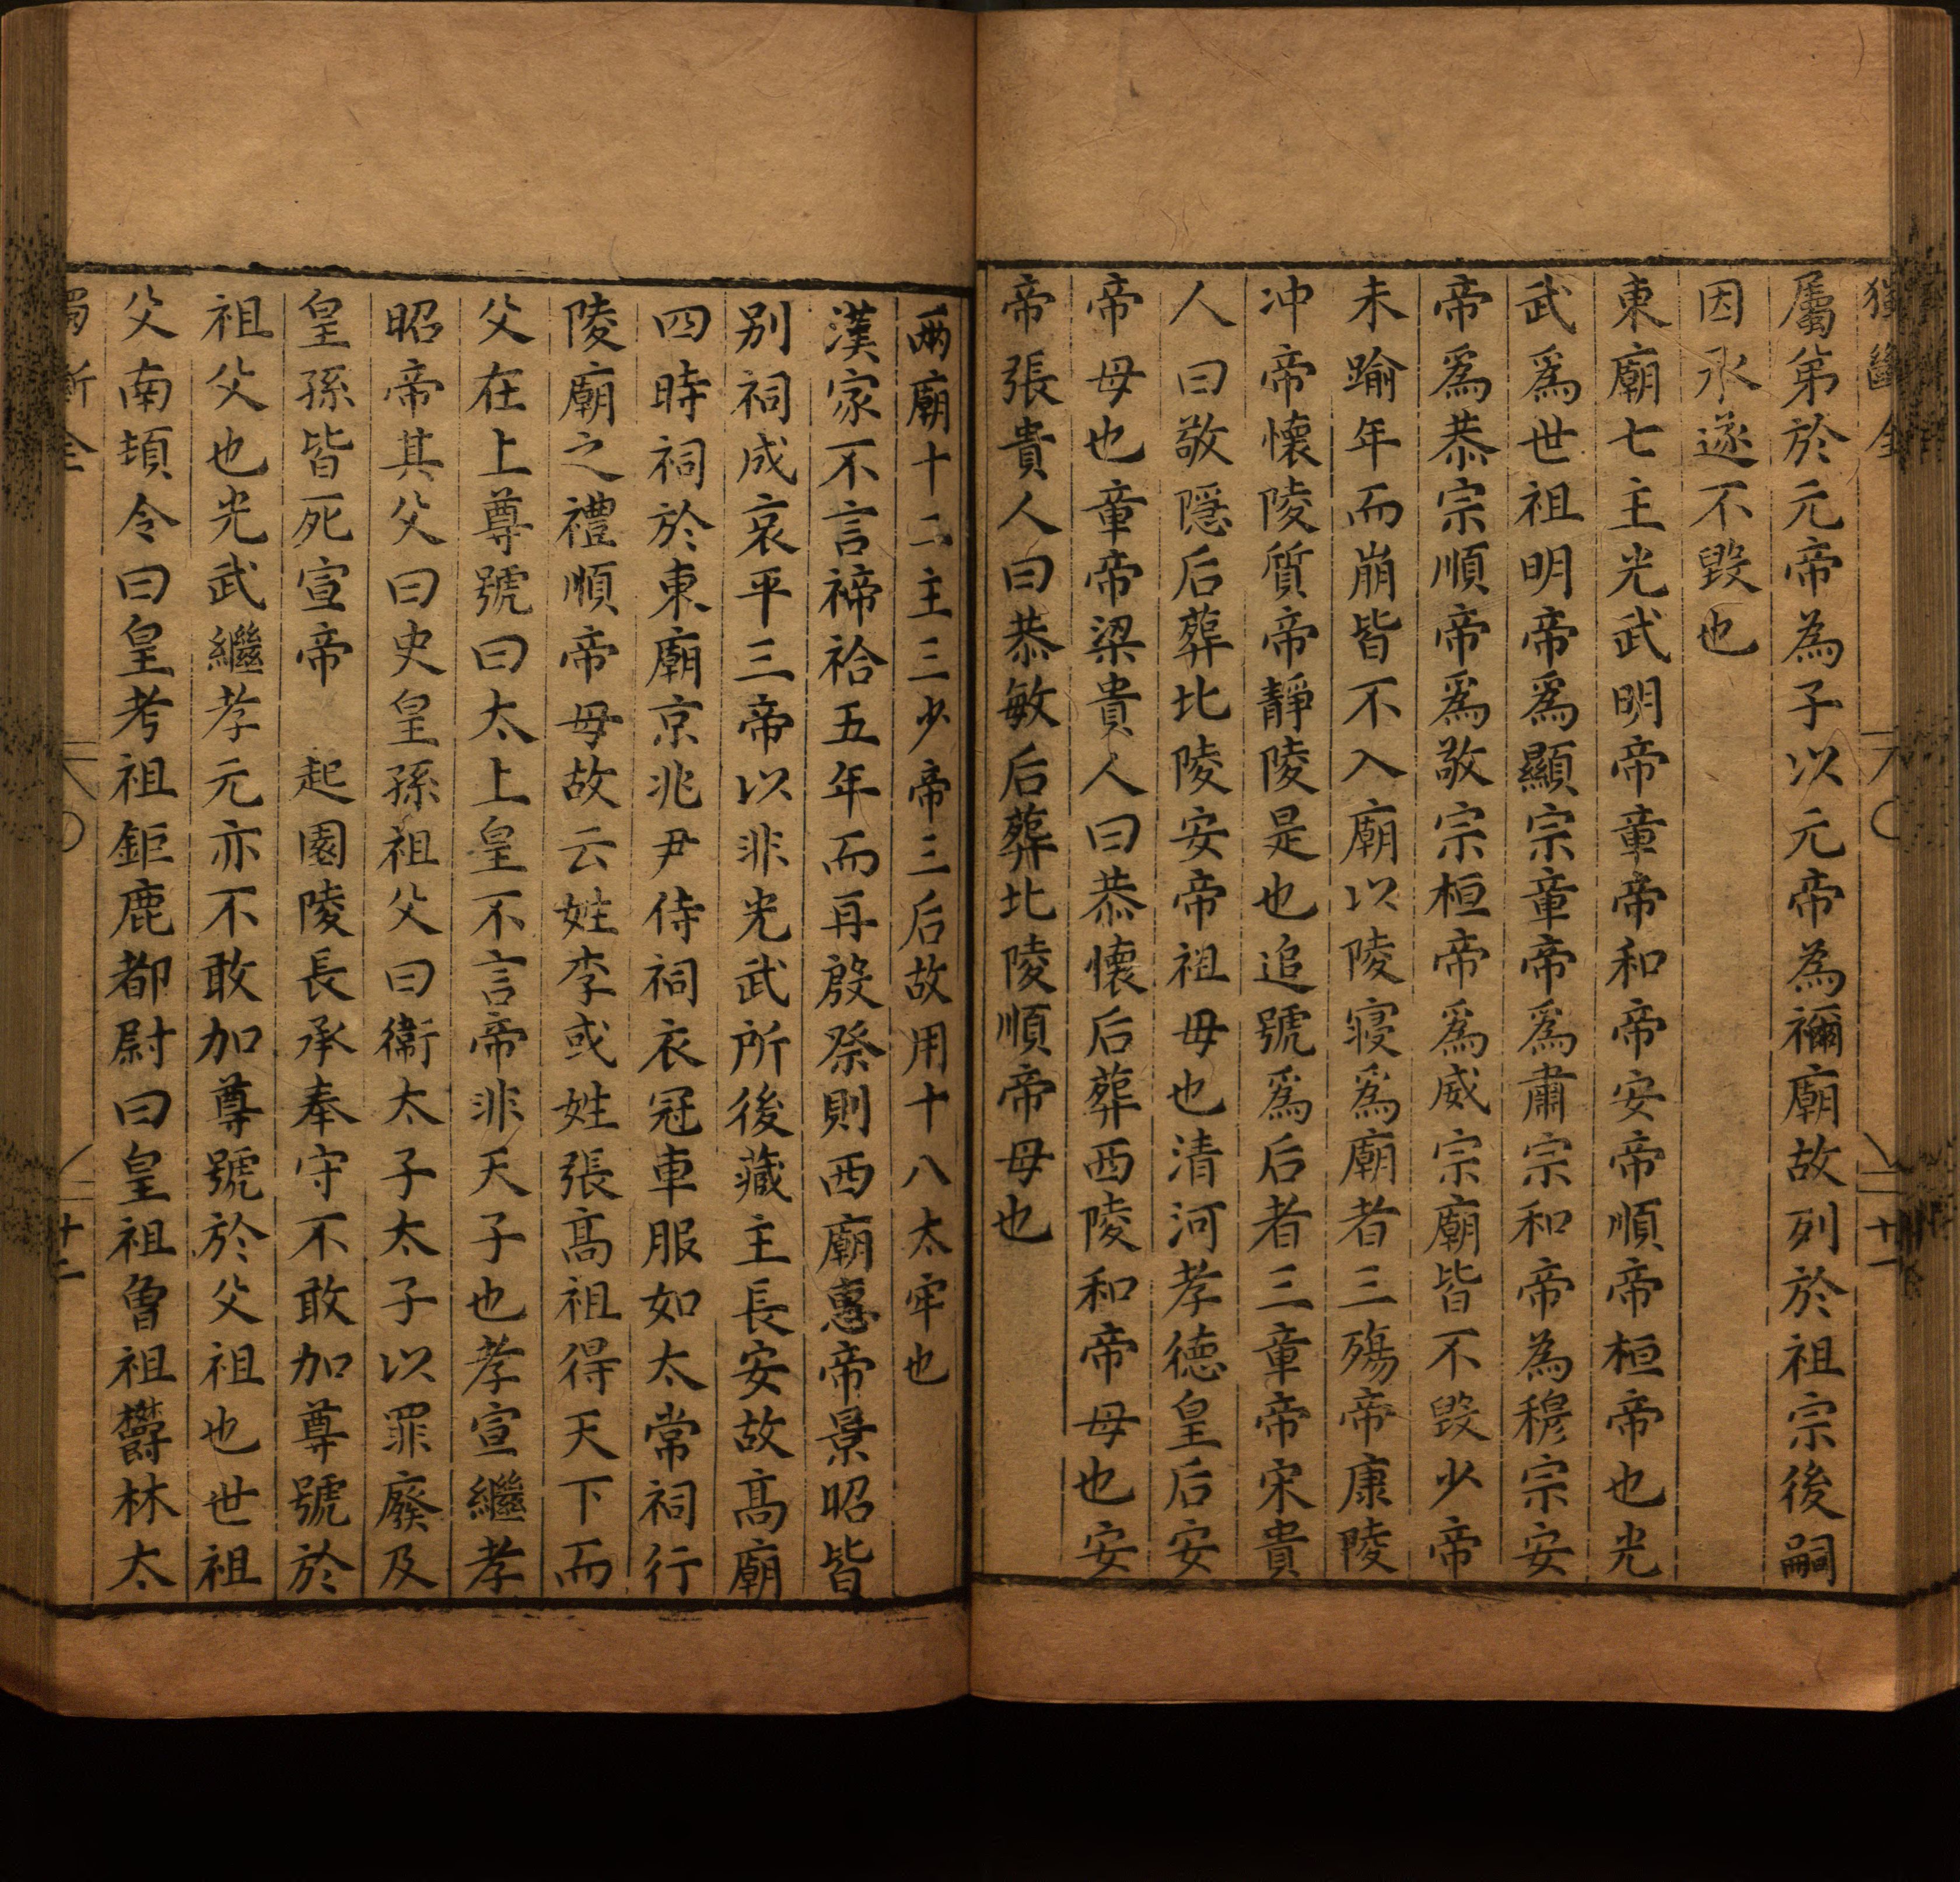 獨斷全 十一
屬第於元帝為子以元帝為禰廟故列於祖宗後嗣
因承遂不毀也
東廟七主光武明帝章帝和帝安帝順帝桓帝也光
武爲世祖明帝爲顯宗章帝爲肅宗和帝為穆宗安
帝爲恭宗順帝爲敬宗桓帝爲威宗廟皆不毀少帝
未踰年而崩皆不入廟以陵寢爲廟者三殤帝康陵
冲帝懷陵質帝靜陵是也追號爲后者三章帝宋貴
人曰敬隱后葬北陵安帝祖母也清河孝德皇后安
帝母也章帝梁貴人曰恭懷后葬西陵和帝母也安
帝張貴人曰恭敏后葬北陵順帝母也
兩廟十二主三少帝三后故用十八太牢也
漢家不言禘祫五年而再殷祭則西廟惠帝景昭皆
别祠成哀平三帝以非光武所後藏主長安故高廟
四時祠於東廟京兆尹侍祠衣冠車服如太常祠行
陵廟之禮順帝母故云姓李或姓張髙祖得天下而
父在上尊號曰太上皇不言帝非天子也孝宣繼孝
昭帝其父曰史皇孫祖父曰衞太子太子以罪廢及
皇孫皆死宣帝 起園陵長承奉守不敢加尊號於
祖父也光武繼孝元亦不敢加尊號於父祖也世祖
父南頓令曰皇考祖鉅鹿都尉曰皇祖曾祖欝林太
獨斷全 十二